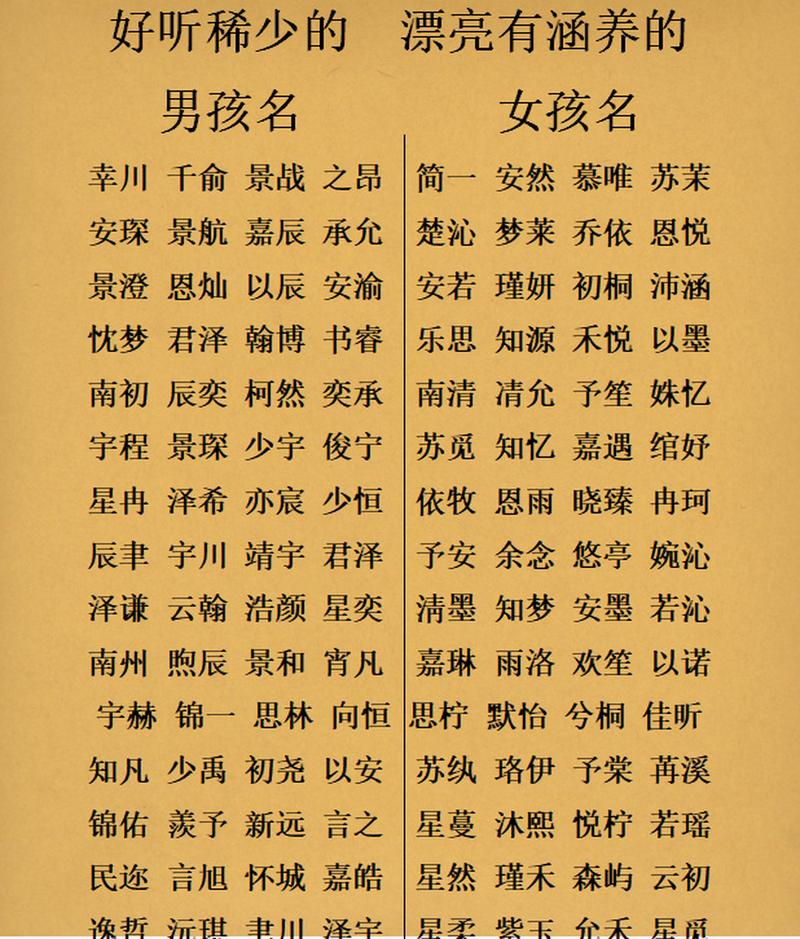 好听稀少的 漂亮有涵养的
男孩名 女孩名
幸川 千俞 景战 之昂 简一 安然 慕唯 苏茉
安琛 景航 嘉辰 承允 楚沁 梦莱 乔依 恩悦
景澄 恩灿 以辰 安渝 安若 瑾妍 初桐 沛涵
忱梦 君泽 翰博 书睿 乐思 知源 禾悦 以墨
南初 辰奕 柯然 奕承 南清 凊允 予笙 姝忆
宇程 景琛 少宇 俊宁 苏觅 知忆 嘉遇 绾妤
星冉 泽希 亦宸 少恒 依牧 恩雨 晓臻 冉珂
辰聿 宇川 靖宇 君泽 予安 余念 悠亭 婉沁
泽谦 云翰 浩颜 星奕 清墨 知梦 安墨 若沁
南州 煦辰 景和 宵凡 嘉琳 雨洛 欢笙 以诺
宇赫 锦一 思林 向恒 思柠 默怡 兮桐 佳昕
知凡 少禹 初尧 以安 苏纨 珞伊 予棠 苒溪
锦佑 羨予 新远 言之 星蔓 沐熙 悦柠 若瑶
民迩 言旭 怀城 嘉皓 星然 瑾禾 森屿 云初
逸哲 沅琪 聿川 泽宇 星柔 紫玉 允禾 星觅